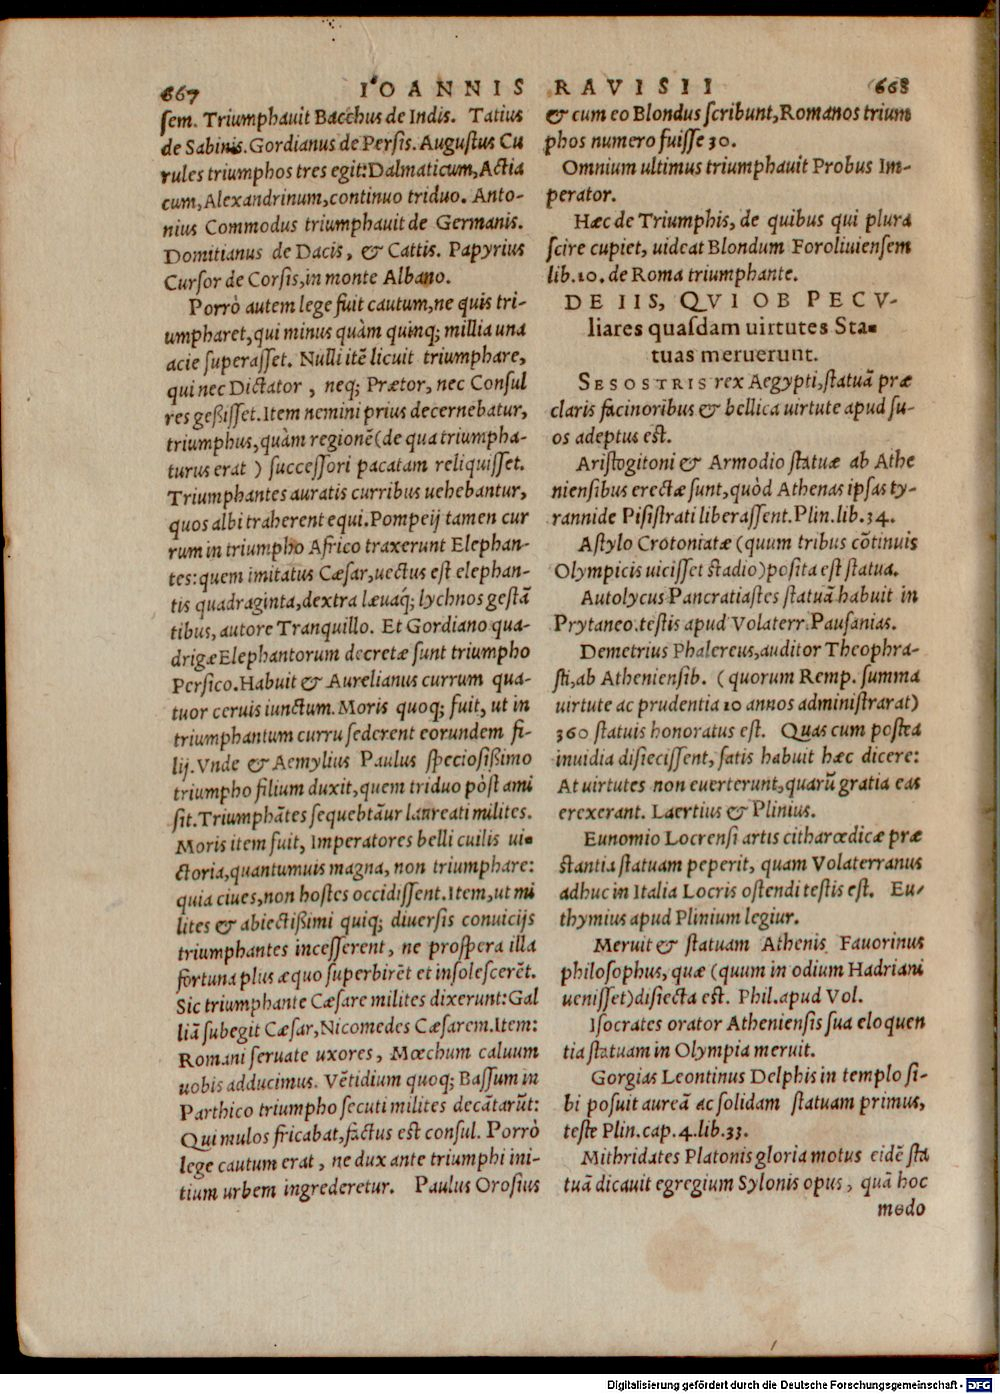 667 IOANNIS RAVISII 668
sem. Triumphauit Bacchus de Indis. Tatius
de Sabinis. Gordianus de Persis. Augustus Cu
rules triumphos tres egit: Dalmaticum, Actia
cum, Alexandrinum, continuo triduo. Anto-
nius Commodus triumphauit de Germanis.
Domitianus de Dacis, & Cattis. Papyrius
Cursor de Corsis, in monte Albano.
Porrò autem lege fuit cautum, ne quis tri-
umpharet, qui minus quàm quinq; millia una
acie superasset. Nulli itē licuit triumphare,
qui nec Dictator, neq; Prætor, nec Consul
res geßisset. Item nemini prius decernebatur,
triumphus, quàm regionē (de qua triumpha-
turus erat) successori pacatam reliquisset.
Triumphantes auratis curribus uehebantur,
quos albi traherent equi. Pompeij tamen cur
rum in triumpho Africo traxerunt Elephan-
tes: quem imitatus Cæsar, uectus est elephan-
tis quadraginta, dextra læuaq́; lychnos gestā
tibus, autore Tranquillo. Et Gordiano qua-
drigæ Elephantorum decretæ sunt triumpho
Persico. Habuit & Aurelianus currum qua-
tuor ceruis iunctum. Moris quoq; fuit, ut in
triumphantum curru sederent eorundem fi-
lij. Vnde & Aemylius Paulus speciosißimo
triumpho filium duxit, quem triduo pòst ami
sit. Triumphātes sequebāur laureati milites.
Moris item fuit, Imperatores belli cuilis ui-
ctoria, quantumuis magna, non triumphare:
quia ciues, non hostes occidissent. Item, ut mi
lites & abiectißimi quiq; diuersis conuicijs
triumphantes incesserent, ne prospera illa
fortuna plus æquo superbirēt et insolescerēt.
Sic triumphante Cæsare milites dixerunt: Gal
liā subegit Cæsar, Nicomedes Cæsarem. Item:
Romani seruate uxores, Mœchum caluum
uobis adducimus. Vētidium quoq; Bassum in
Parthico triumpho secuti milites decātarūt:
Qui mulos fricabat, factus est consul. Porrò
lege cautum erat, ne dux ante triumphi ini-
tium urbem ingrederetur. Paulus Orosius
& cum eo Blondus scribunt, Romanos trium
phos numero fuisse 30.
Omnium ultimus triumphauit Probus Im-
perator.
Hæc de Triumphis, de quibus qui plura
scire cupiet, uideat Blondum Foroliuiensem
lib. 10. de Roma triumphante.
DE IIS, QVI OB PECV-
liares quasdam uirtutes Sta-
tuas meruerunt.
SESOSTRIS rex Aegypti, statuā præ
claris facinoribus & bellica uirtute apud su-
os adeptus est.
Aristogitoni & Armodio statuæ ab Athe
niensibus erectæ sunt, quòd Athenas ipsas ty-
rannide Pisistrati liberassent. Plin. lib. 34.
Astylo Crotoniatæ (quum tribus cōtinuis
Olympicis uicisset stadio) posita est statua.
Autolycus Pancratiastes statuā habuit in
Prytaneo. testis apud Volaterr. Pausanias.
Demetrius Phalereus, auditor Theophra-
sti, ab Atheniensib. (quorum Remp. summa
uirtute ac prudentia 10 annos administrarat)
360 statuis honoratus est. Quas cum postea
inuidia disiecissent, satis habuit hæc dicere:
At uirtutes non euerterunt, quarū gratia eas
erexerant. Laertius & Plinius.
Eunomio Locrensi artis citharœdicæ præ
stantia statuam peperit, quam Volaterranus
adhuc in Italia Locris ostendi testis est. Eu-
thymius apud Plinium legiur.
Meruit & statuam Athenis Fauorinus
philosophus, quæ (quum in odium Hadriani
uenisset) disiecta est. Phil. apud Vol.
Isocrates orator Atheniensis sua eloquen
tia statuam in Olympia meruit.
Gorgias Leontinus Delphis in templo si-
bi posuit aureā ac solidam statuam primus,
teste Plin. cap. 4. lib. 33.
Mithridates Platonis gloria motus eidē sta
tuā dicauit egregium Sylonis opus, quā hoc
modo
Digitalisierung gefördert durch die Deutsche Forschungsgemeinschaft - DFG